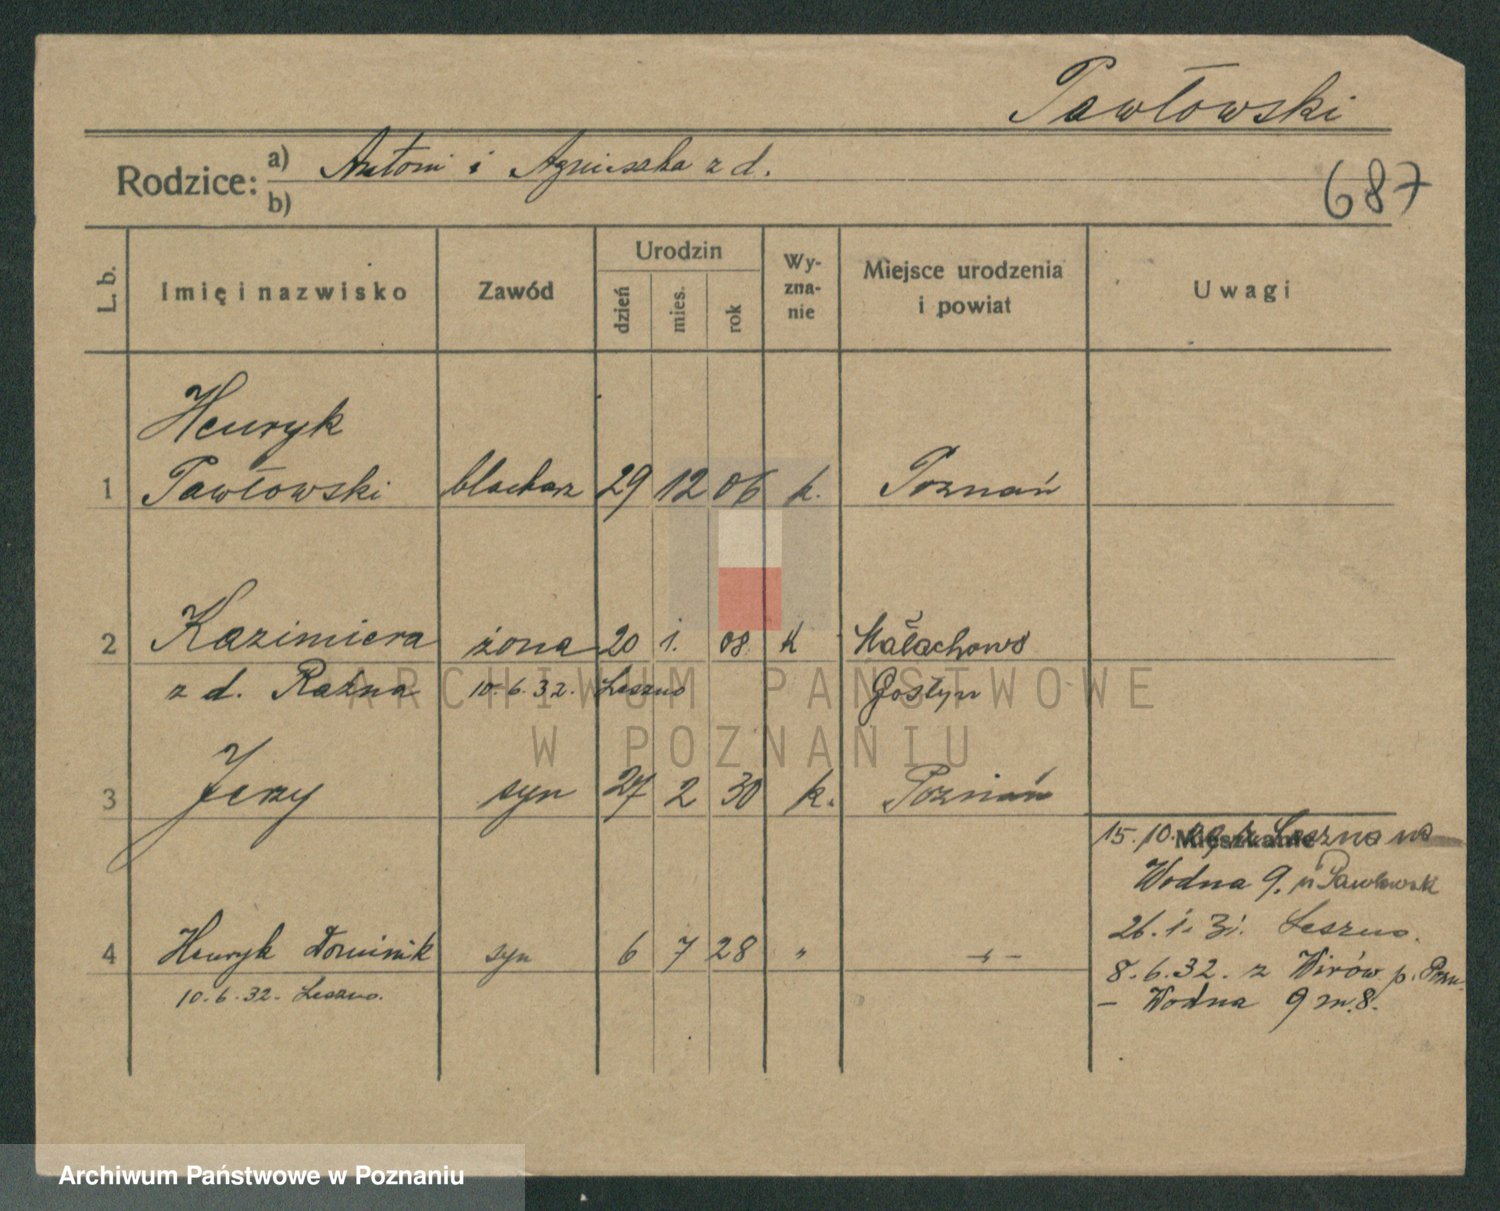 Pawłowski
Rodzice: a) Antoni i Agnieszka z d.
b)
687
L. b.
Imię i nazwisko
Zawód
Urodzin
dzień
mies.
rok
Wy-
zna-
nie
Miejsce urodzenia
i powiat
Uwagi
Henryk
1 Pawłowski blacharz 29 12 06 k. Poznań
2 Kazimiera żona 20 1. 08. k Małachowo
z d. Ratna 10.6.32. Leszno Gostyn
3 Jerzy syn 27 2 30 k. Poznań
Mieszkanie
15.10. z Leszna na
Wodna 9. Pawłowski
26.1.31. Leszno.
4 Henryk Dominik syn 6 7 28 " -"-
8.6.32. z Wirów p. Pozn.
10.6.32. Leszno.
- Wodna 9 m.8.
ARCHIWUM PAŃSTWOWE
W POZNANIU
Archiwum Państwowe w Poznaniu